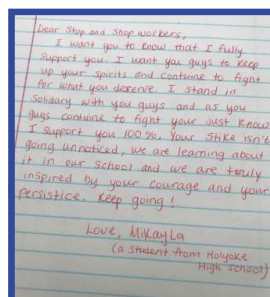 Dear Stop and Shop workers,
I want you to know that I fully
support you. I want you guys to keep
up your spirits and contuine to fight
for what you deserve. I stand in
solidary with you guys and as you
guys contuine to fight your just know
I support you 100%. Your Stike isn't
going unnoticed, we are learning about
it in our school and we are truly
inspired by your courage and your
persistice. Keep going!
Love, Mikayla
(a student from Holyoke
High school)